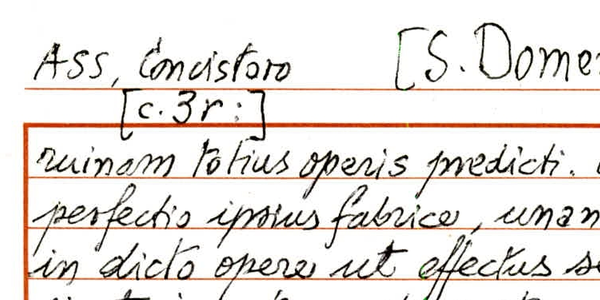 Ass, Concistoro [S. Dome
[c. 3r:]
ruinam totius operis predicti.
perfectio ipsius fabrice, unan
in dicto opere ut effectus se